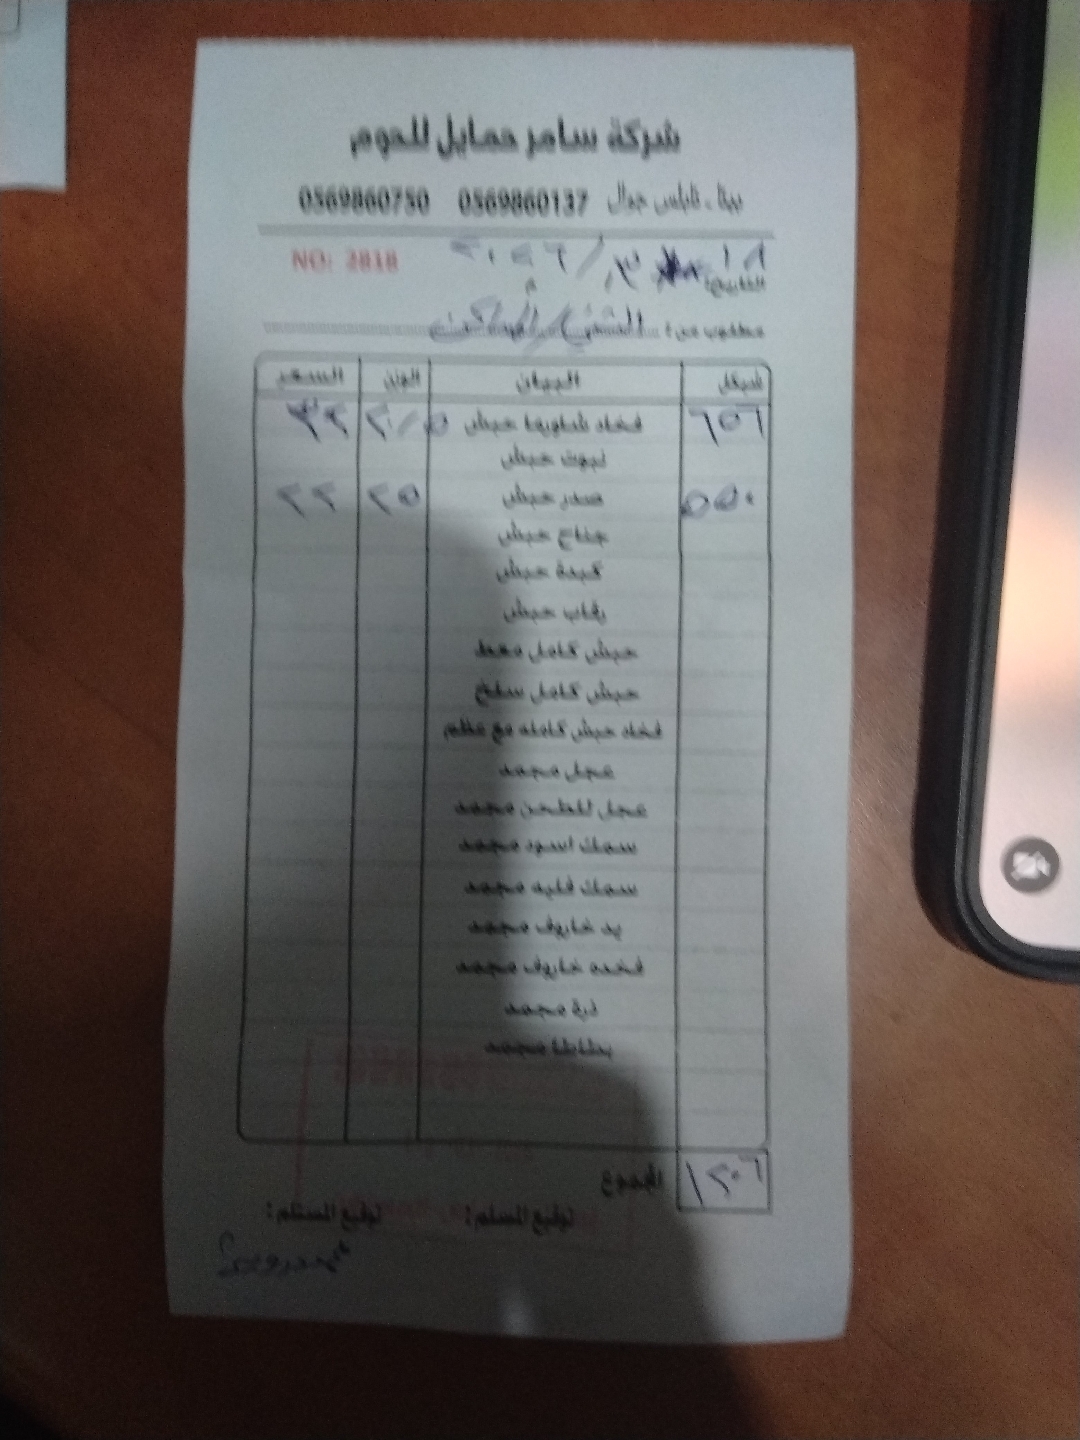 شركة سامر حمايل للحوم
بيتا - نابلس جوال 0569860137 0569860750
التاريخ: ١٨ /٣/ ٢٠٢٦ NO: 2818
مطلوب من:
شيكل البيان الوزن السعر
٦٥٦ فخاد شاورما حبش ٢٠/٥ ٣٢
نبوت حبش
٥٥٠ صدر حبش ٢٥ ٢٢
جناح حبش
كبدة حبش
رقاب حبش
حبش كامل ممط
حبش كامل سلخ
فخاد حبش كامله مع عظم
عجل مجمد
عجل للطحن مجمد
سمك اسود مجمد
سمك فليه مجمد
يد خاروف مجمد
فخده خاروف مجمد
ذرة مجمد
بطاطا مجمد
١٢٠٦ المجموع
توقيع المسلم: توقيع المستلم: